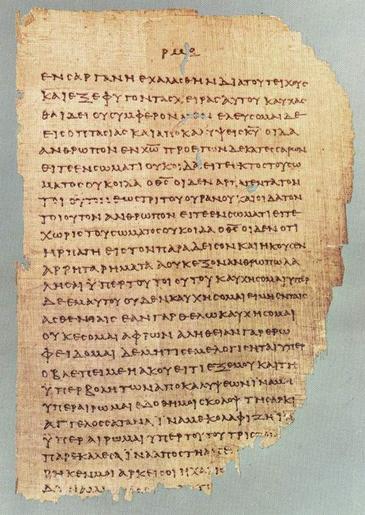 ΕΝ ϹΑΡΓΑΝΗ ΕΧΑΛΑϹΘΗΝ ΔΙΑ ΤΟΥ ΤΕΙΧΟΥϹ
ΚΑΙ ΕΞΕΦΥΓΟΝ ΤΑϹ ΧΕΙΡΑϹ ΑΥΤΟΥ ΚΑΥΧΑϹ
ΘΑΙ ΔΕΙ ΟΥ ϹΥΜΦΕΡΟΝ ΕΛΕΥϹΟΜΑΙ ΔΕ
ΕΙϹ ΟΠΤΑϹΙΑϹ ΚΑΙ ΑΠΟΚΑΛΥΨΕΙϹ Κ̅Υ̅ ΟΙΔΑ
ΑΝΘΡΩΠΟΝ ΕΝ Χ̅Ω̅ ΠΡΟ ΕΤΩΝ ΔΕΚΑΤΕϹϹΑΡΩΝ
ΕΙΤΕ ΕΝ ϹΩΜΑΤΙ ΟΥΚ ΟΙΔΑ ΕΙΤΕ ΕΚΤΟϹ ΤΟΥ ϹΩ
ΜΑΤΟϹ ΟΥΚ ΟΙΔΑ Ο Θ̅Ϲ̅ ΟΙΔΕΝ ΑΡΠΑΓΕΝΤΑ ΤΟΝ
ΕΩϹ ΤΡΙΤΟΥ ΟΥΡΑΝΟΥ ΚΑΙ ΟΙΔΑ ΤΟΝ
ΤΟΙΟΥΤΟΝ ΑΝΘΡΩΠΟΝ ΕΙΤΕ ΕΝ ϹΩΜΑΤΙ ΕΙΤΕ
ΧΩΡΙϹ ΤΟΥ ϹΩΜΑΤΟϹ ΟΥΚ ΟΙΔΑ Ο Θ̅Ϲ̅ ΟΙΔΕΝ ΟΤΙ
ΗΡΠΑΓΗ ΕΙϹ ΤΟΝ ΠΑΡΑΔΕΙϹΟΝ ΚΑΙ ΗΚΟΥϹΕΝ
ΑΡΡΗΤΑ ΡΗΜΑΤΑ Α ΟΥΚ ΕΞΟΝ ΑΝΘΡΩΠΩ ΛΑ
ΛΗϹΑΙ ΥΠΕΡ ΤΟΥ ΤΟΙΟΥΤΟΥ ΚΑΥΧΗϹΟΜΑΙ ΥΠΕΡ
ΔΕ ΕΜΑΥΤΟΥ ΟΥΔΕΝ ΚΑΥΧΗϹΟΜΑΙ ΕΙ ΜΗ ΕΝ ΤΑΙϹ
ΑϹΘΕΝΕΙΑΙϹ ΕΑΝ ΓΑΡ ΘΕΛΩ ΚΑΥΧΗϹΟΜΑΙ
ΟΥΚ ΕϹΟΜΑΙ ΑΦΡΩΝ ΑΛΗΘΕΙΑΝ ΓΑΡ ΕΡΩ
ΦΕΙΔΟΜΑΙ ΔΕ ΜΗ ΤΙϹ ΕΜΕ ΛΟΓΙϹΗΤΑΙ ΥΠΕΡ
Ο ΒΛΕΠΕΙ ΜΕ Η ΑΚΟΥΕΙ ΤΙ ΕΞ ΕΜΟΥ ΚΑΙ ΤΗ
ΥΠΕΡΒΟΛΗ ΤΩΝ ΑΠΟΚΑΛΥΨΕΩΝ ΙΝΑ ΜΗ
ΥΠΕΡΑΙΡΩΜΑΙ ΕΔΟΘΗ ΜΟΙ ϹΚΟΛΟΨ ΤΗ ϹΑΡΚΙ
ΑΓΓΕΛΟϹ ϹΑΤΑΝΑ ΙΝΑ ΜΕ ΚΟΛΑΦΙΖΗ ΙΝΑ
ΥΠΕΡΑΙΡΩΜΑΙ ΥΠΕΡ ΤΟΥΤΟΥ ΤΡΙϹ
ΠΑΡΕΚΑΛΕϹΑ ΙΝΑ ΑΠΟϹΤΗ
ΡΗΚΕΝ ΜΟΙ ΑΡΚΕΙ ϹΟΙ Η